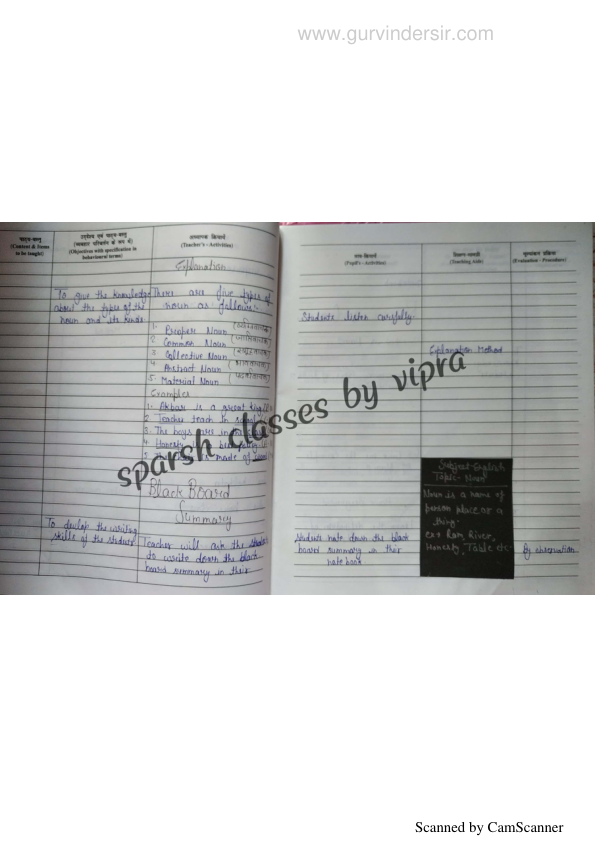 www.gurvindersir.com
पाठ्य-वस्तु
(Content & Items
to be taught)
उद्देश्य एवं पाठ्य-वस्तु
(व्यवहार परिवर्तन के रूप में)
(Objectives with specification in
behavioural terms)
अध्यापक क्रियायें
(Teacher's-Activities)
Explanation
To give the knowledge
about the types of the
noun and its kinds
There are five types of
noun as following:-
1. Proper Noun
2. Common Noun
3. Collective Noun
4. Abstract Noun
5. Material Noun
Examples
1. Akbar is a great king
2. Teacher teach in
3. The boys are in
4. Honesty is
5. made of
Black Board
Summary
To devlop the writing
skills of the students
Teacher will ask the students
to write down the black
board summary in their
छात्र-क्रियायें
(Pupil's-Activities)
शिक्षण-सामग्री
(Teaching Aids)
मूल्यांकन प्रक्रिया
(Evaluation-Procedure)
Students listen carefully.
Explanation Method
Subject-English
Topic- Noun
Noun is a name of
person place or a
thing.
ex- Ram, River,
Honesty, Table etc.
Students note down the black
board summary in their
note book
By observation
sparsh classes by vipra
Scanned by CamScanner